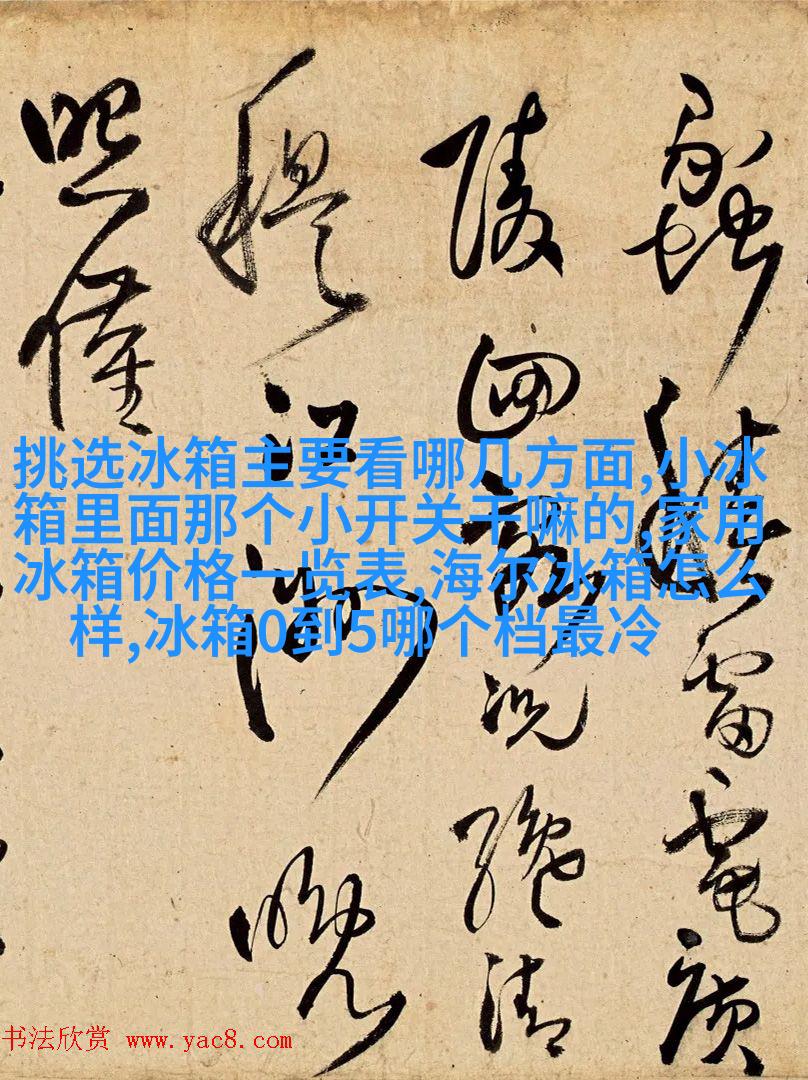 雷電
陵 況絶清
江湖晚
照
挑选冰箱主要看哪几方面,小冰
箱里面那个小开关干嘛的,家用
冰箱价格一览表,海尔冰箱怎么
样,冰箱0到5哪个档最冷
书法欣赏 www.yac8.com